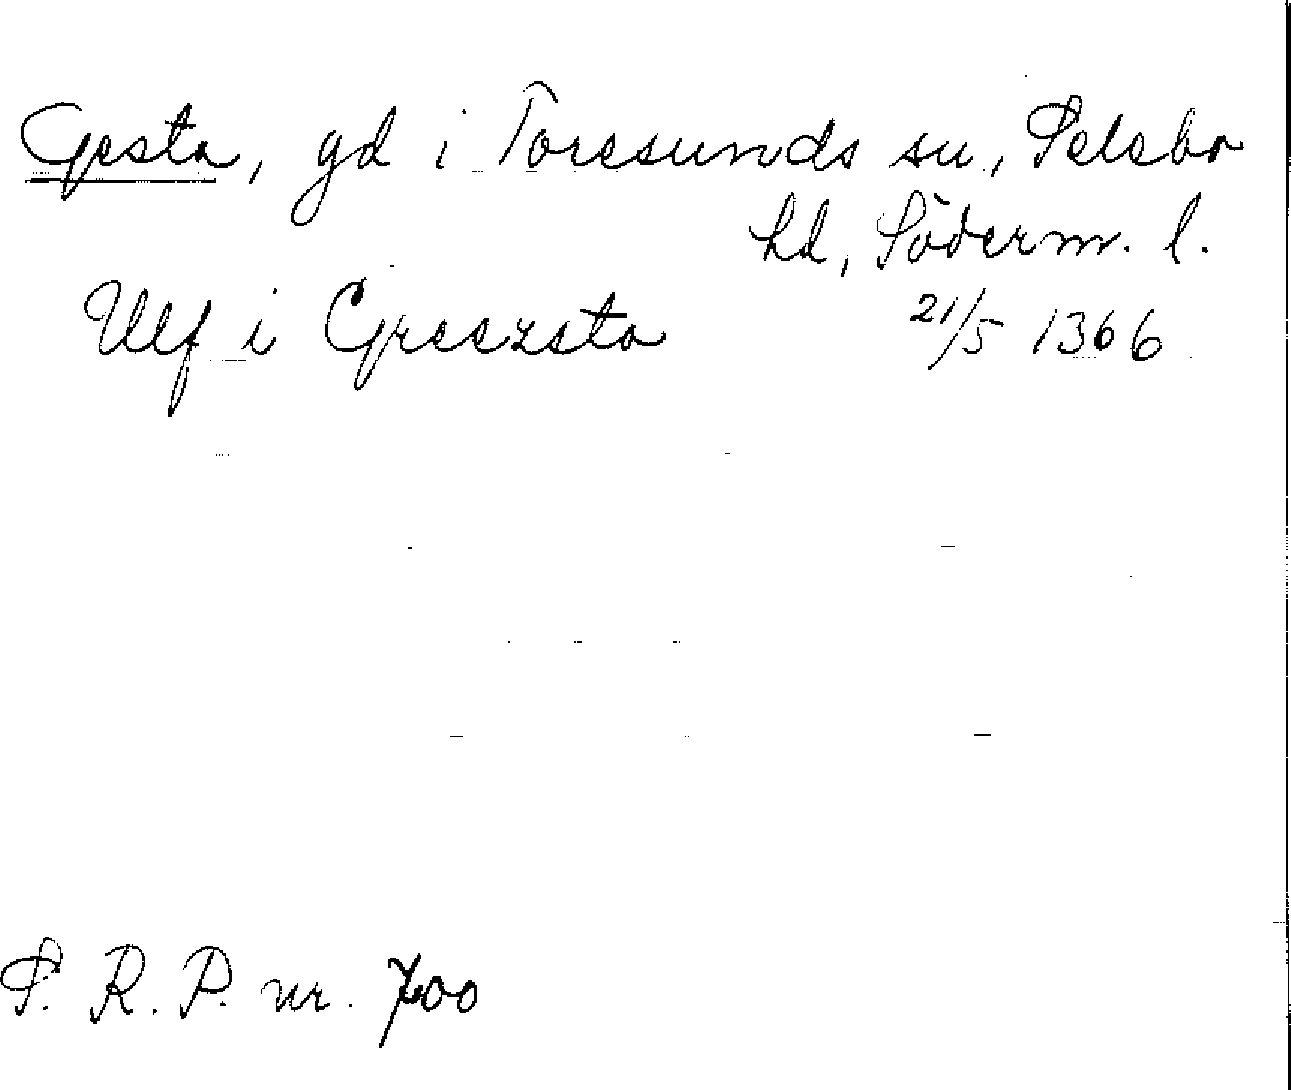 Gesta, gd i Toresunds sn, Selebo
hd, Söderm. l.
Ulf i Greezsta 21/5 1366
S. R. P. nr. 700